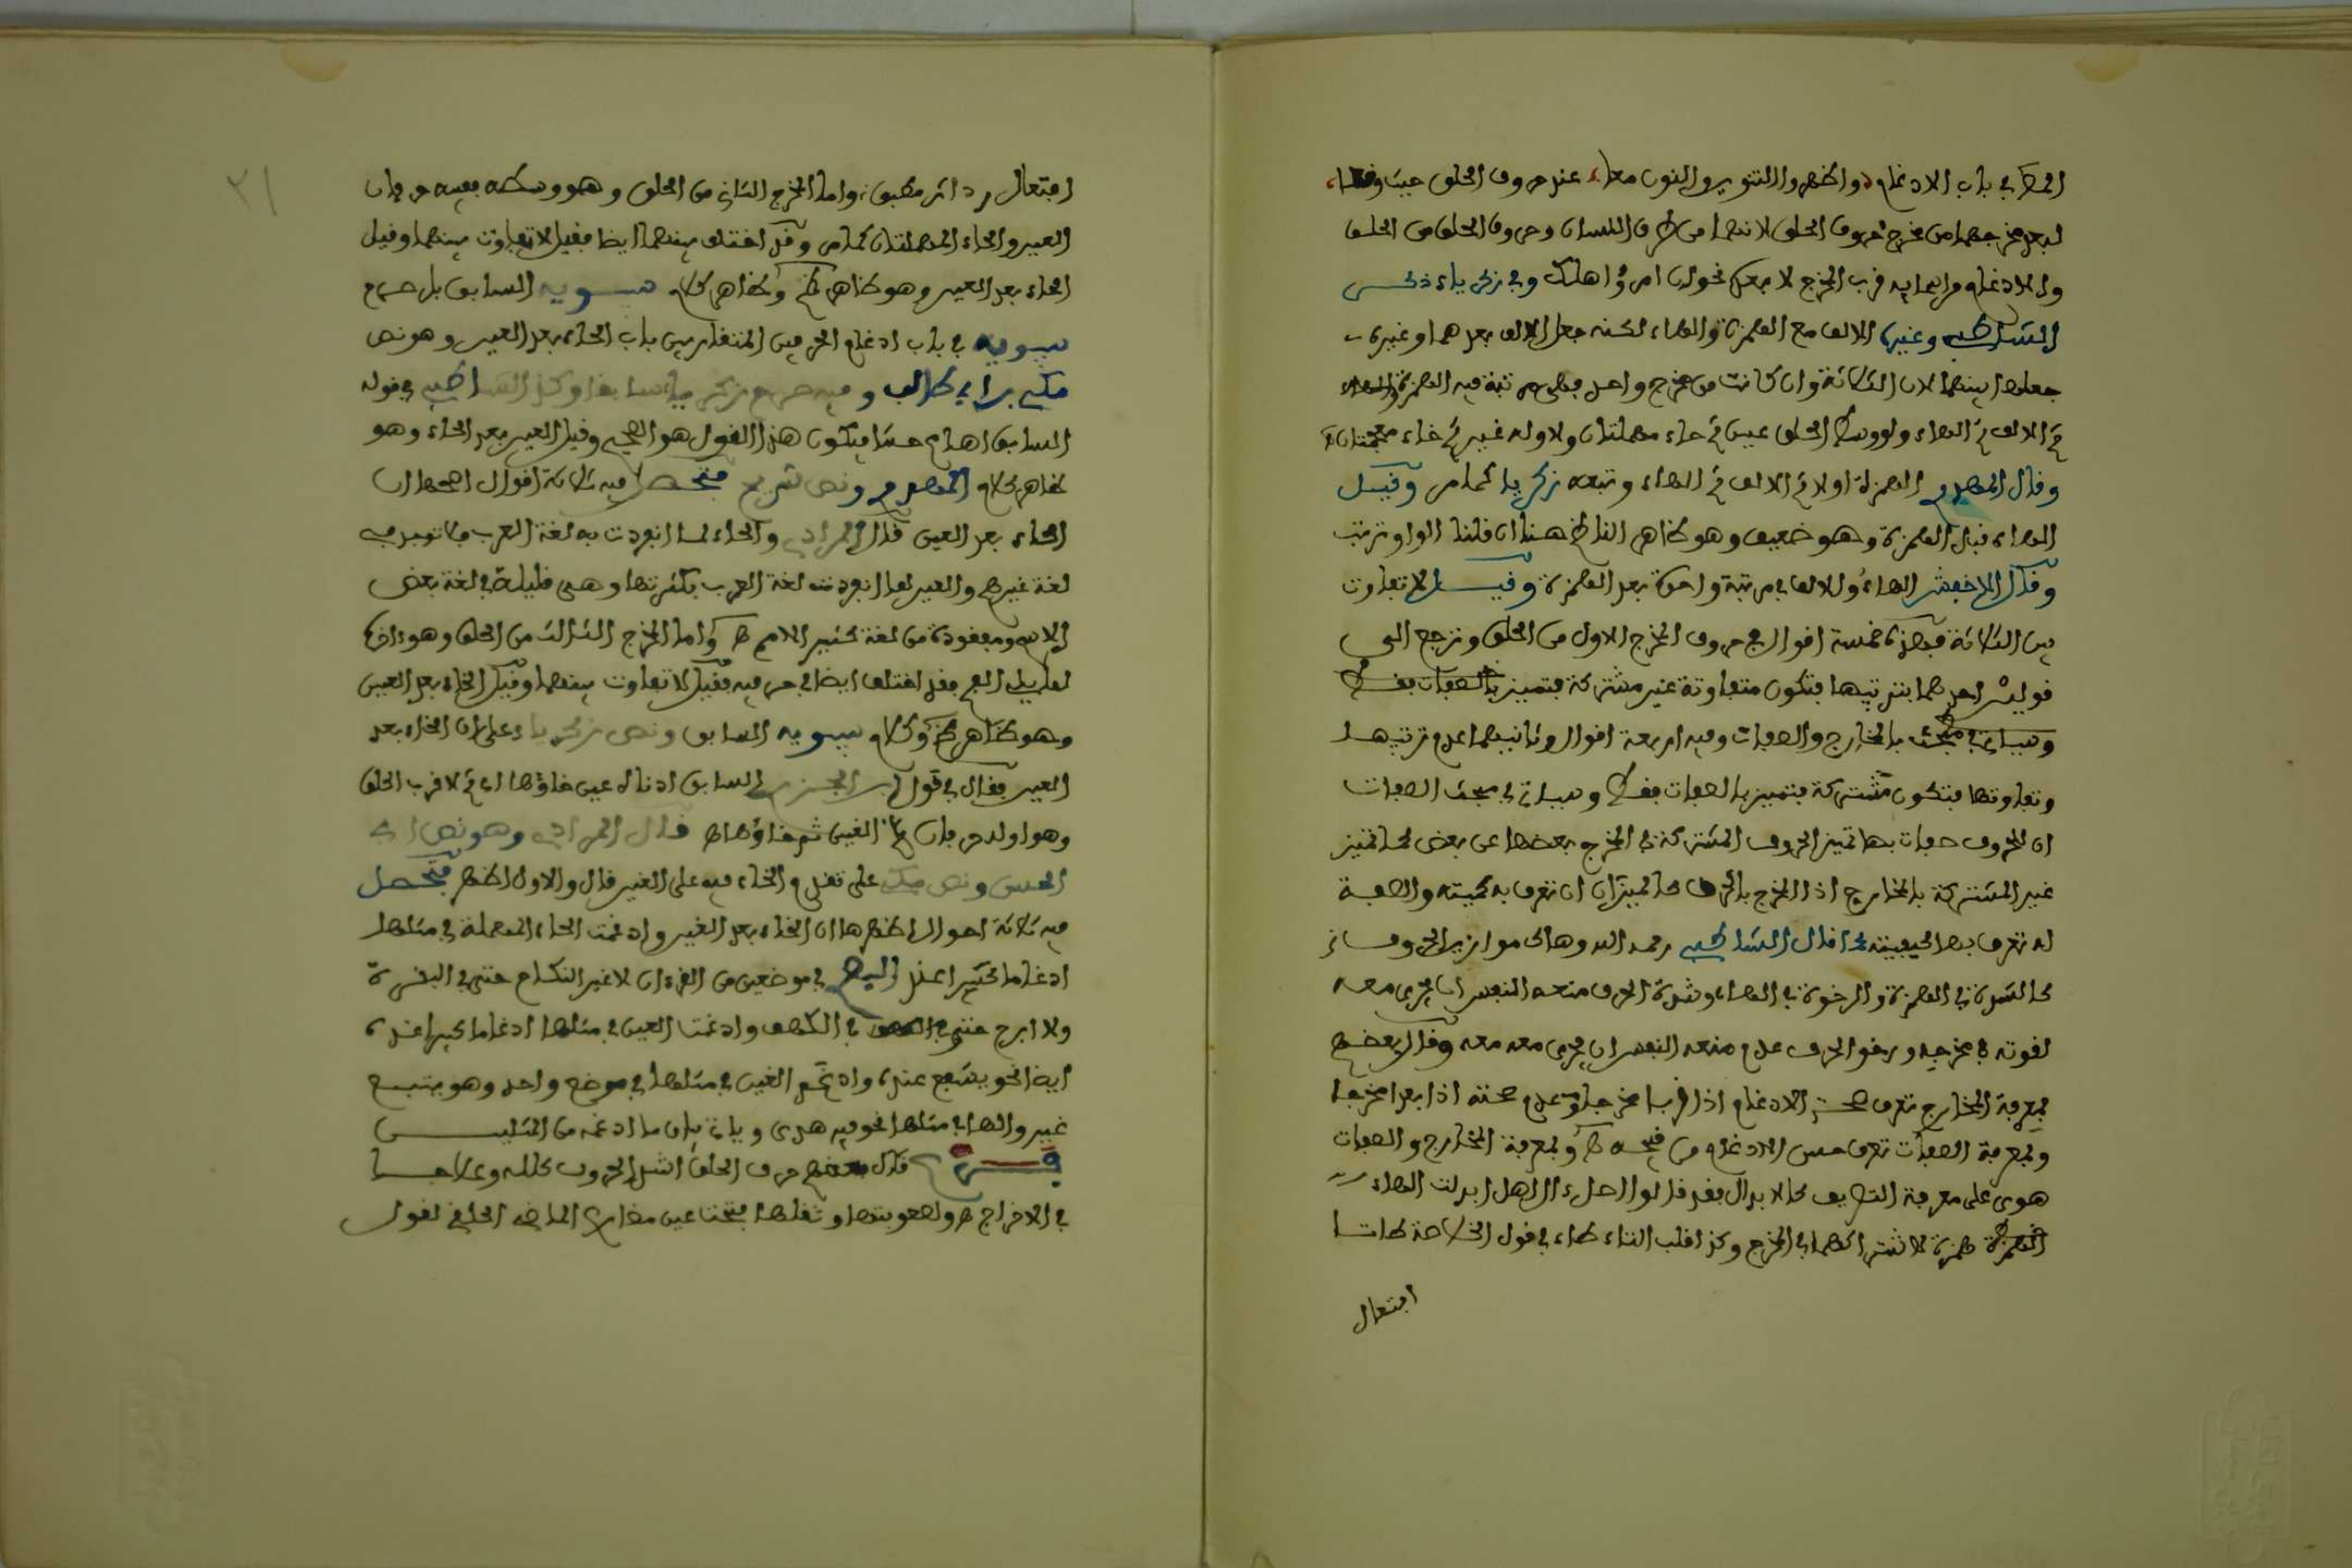 في باب الادغام واظهروا التنوين والنون معا، عند حروف الحلق حيث وقعا،
لبعد مخرجهما من مخرج حروف الحلق لانهما من طرف اللسان وحروف الحلق من الحلق
والادغام قرب المخرج نحو ان امرؤا هلك وفي زكرياء ذكر
الشاطبي وغيره الالف مع الهمزة والهاء لكنه جعل الالف بعدهما وغيره
جعلها بينهما لان الثلاثة وان كانت من مخرج واحد مرتبة فيه الهمزة
ثم الالف ثم الهاء ولوسط الحلق عين ثم حاء مهملتان ولاوله غين ثم خاء معجمتان
وقال الهمزة اولا ثم الالف ثم الهاء وتبعه زكريا كما مر وقيل
الهاء قبل الهمزة وهو ضعيف وهو ظاهر الناظم هنا ان قلنا الواو ترتب
وقال الاخفش الهاء والالف في مرتبة واحدة بعد الهمزة وقيل لا تفاوت
بين الثلاثة فهذه خمسة اقوال في حروف المخرج الاول من الحلق وترجع الى
قولين احدهما بترتيبها فتكون متفاوتة غير مشتركة فتميز
وسياتي في مبحث بالمخارج والصفات وفيه اربعة اقوال وثانيهما عدم ترتيبها
وتفاوتها فتكون مشتركة فتميز بالصفات فقط وسياتي في مبحث الصفات
ان للحروف صفات بها تميز الحروف المشتركة في المخرج بعضها عن بعض كما تميز
غير المشتركة بالمخارج اذ المخرج للحرف كالميزان ان تعرف به كميته والصفة
له تعرف بها كيفيته كما قال الشاطبي رحمه الله وهاك موازين الحروف
كالشدة في الهمزة والرخوة في الهاء وشدة الحرف منعه النفس ان يجري معه
لقوته في مخرجه ورخو الحرف عدم منعه النفس ان يجري معه وقال بعضهم
بمعرفة المخارج تعرف صحة الادغام اذا قربا مخرجا وعدم صحته اذا بعدا مخرجا
وبمعرفة الصفات تعرف حسن الادغام من قبحه وبمعرفة المخارج والصفات
على معرفة التصريف كالابدال فقد قالوا اصل ءال اهل ابدلت الهاء
همزة لاشتراكهما في المخرج وكذا قلب التاء طاء في قول الخلاصة طا تا
افتعال
٢١
افتعال رد اثر مطبق، واما المخرج الثاني من الحلق وهو وسطه ففيه حرفان
العين والحاء المهملتان كما مر وقد اختلف بينهما ايضا فقيل لا تفاوت بينهما وقيل
الحاء بعد العين وهو ظاهر وظاهر كلام سيبويه السابق بل صرح
سيبويه في باب ادغام الحرفين المتقاربين باب الحاء بعد العين وهو نص
مكي بن ابي طالب وفيه صرح زكرياء سابقا وكذا الشاطبي في قوله
السابق اهاع حشا فيكون هذا القول هو الصحيح وقيل العين بعد الحاء وهو
ظاهر كلام ونص شريح فتحصل فيه ثلاثة اقوال اصحها ان
الحاء بعد العين قال المرادي والحاء مما انفردت به لغة العرب فلا توجد في
لغة غيرهم والعين مما انفردت لغة العرب بكثرتها وهي قليلة في لغة بعض
الامم ومفقودة من لغة كثير الامم واما المخرج الثالث من الحلق وهو ادناه
فقد اختلف ايضا في حرفيه فقيل لا تفاوت بينهما وقيل الخاء بعد الغين
وهو ظاهر وكلام سيبويه السابق ونص زكرياء على ان الخاء بعد
الغين فقال في قول ابن الجزري السابق ادناه غين خاؤها اي ثم لاقرب الحلق
وهو اوله حرفان الغين ثم خاؤها قال المرادي وهو نص ابي
الحسن ونص مكي على تقديم الخاء فيه على الغين قال والاول اظهر فتحصل
فيه ثلاثة اقوال اظهرها ان الخاء بعد الغين وادغمت الحاء المهملة في مثلها
ادغاما كبيرا عند في موضعين من القرءان لا غير النكاح حتى في البقرة
ولا ابرح حتى في الكهف وادغمت العين في مثلها ادغاما كبيرا عنده
ايضا نحو يشفع عنده وادغم الغين في مثلها في موضع واحد وهو يبتغ
غير والهاء في مثلها نحو فيه هدى وياتي بيان ما ادغمه من المثلين
قال بعضهم حرف الحلق اثقل الحروف كلفة وعلاجا
في الاخراج ولصعوبتها وثقلها فتحت عين مضارع الماضي الحلقي لقول